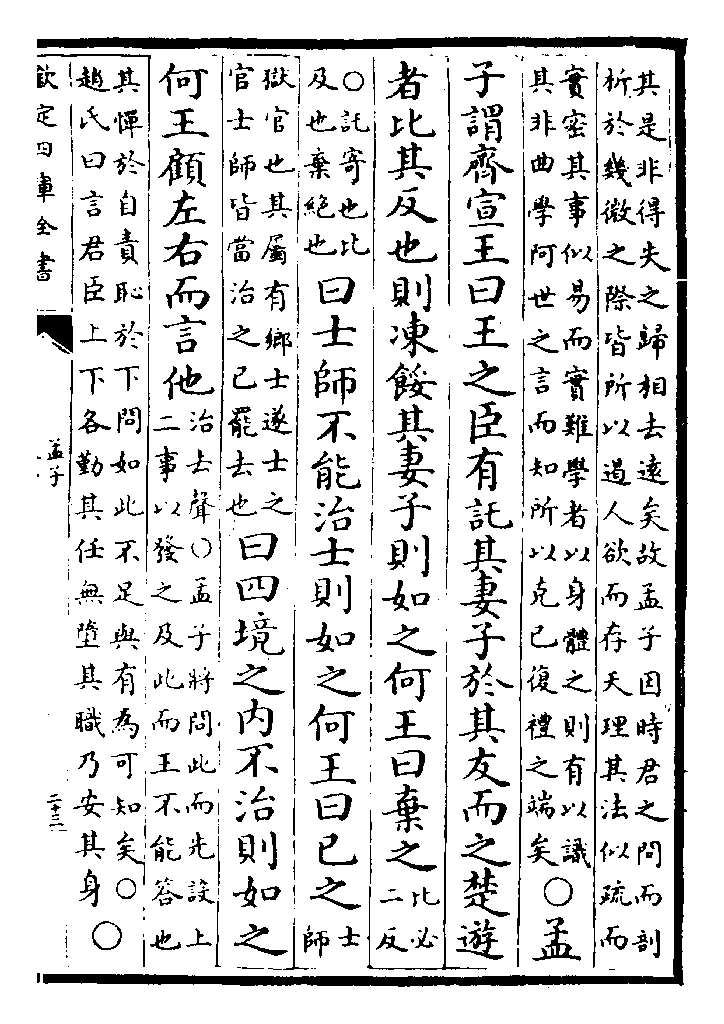 其是非得失之歸相去遠矣故孟子因時君之問而剖
析於幾微之際皆所以遏人欲而存天理其法似疏而
實密其事似易而實難學者以身體之則有以識
其非曲學阿世之言而知所以克己復禮之端矣〇孟
子謂齊宣王曰王之臣有託其妻子於其友而之楚遊
者比其反也則凍餒其妻子則如之何王曰棄之比必
二反
〇託寄也比
及也棄絕也曰士師不能治士則如之何王曰已之士
師
獄官也其屬有鄉士遂士之
官士師皆當治之已罷去也曰四境之內不治則如之
何王顧左右而言他治去聲〇孟子將問此而先設上
二事以發之及此而王不能答也
其憚於自責恥於下問如此不足與有為可知矣〇
趙氏曰言君臣上下各勤其任無墮其職乃安其身〇
欽定四庫全書
孟子
二十三